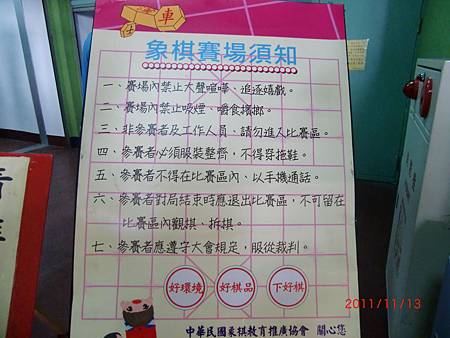 車
仕
象棋賽場須知
一、賽場內禁止大聲喧嘩、追逐嬉戲。
二、賽場內禁止吸煙、嚼食檳榔。
三、非參賽者及工作人員、請勿進入比賽區。
四、參賽者必須服裝整齊，不得穿拖鞋。
五、參賽者不得在比賽區內、以手機通話。
六、參賽者對局結束時應退出比賽區，不可留在
比賽區內觀棋、拆棋。
七、參賽者應遵守大會規定，服從裁判。
好環境 好棋品 下好棋
中華民國象棋教育推廣協會 關心您
2011/11/13